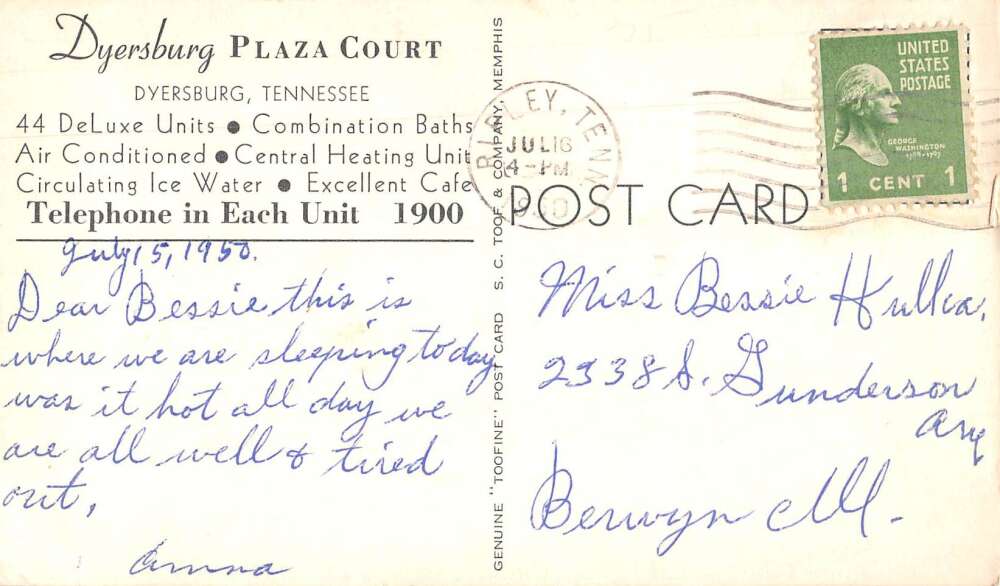 Dyersburg PLAZA COURT
DYERSBURG, TENNESSEE
44 DeLuxe Units ● Combination Baths
Air Conditioned ● Central Heating Unit
Circulating Ice Water ● Excellent Cafe
Telephone in Each Unit 1900
July 15, 1950.
Dear Bessie this is
where we are sleeping today
was it hot all day we
are all well & tired
out,
Anna
GENUINE "TOOFINE" POST CARD S. C. TOOF & COMPANY, MEMPHIS
RIPLEY, TENN.
JUL 16
4-PM
1950
UNITED
STATES
POSTAGE
GEORGE
WASHINGTON
1789-1797
1 CENT 1
POST CARD
Miss Bessie Hullia,
2338 S. Gunderson
Ave
Berwyn Ill.